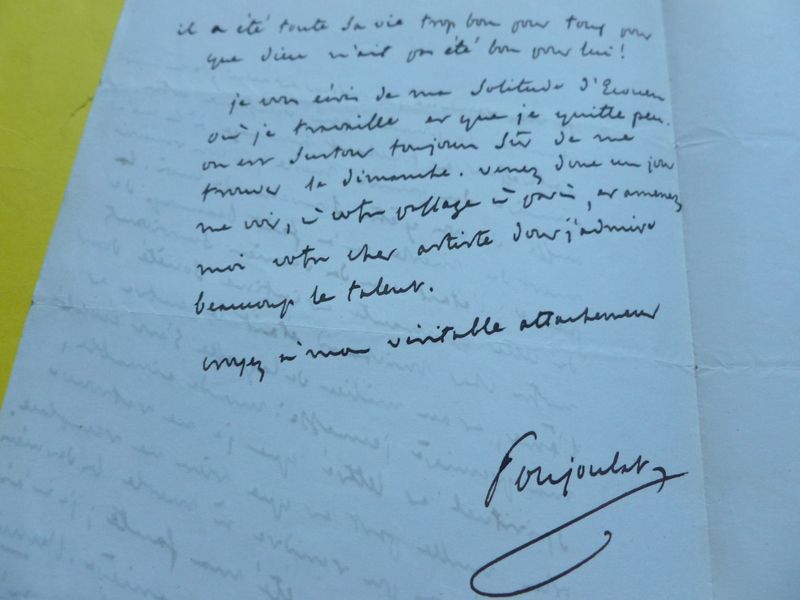 il a été toute sa vie trop bon pour tous pour
que dieu n'ait pas été bon pour lui!
je vous écris de ma solitude d'Ecouen
où je travaille et que je quitte peu.
on est surtout toujours sûr de me
trouver le dimanche. venez donc un jour
me voir, à votre passage à paris, et amenez
moi votre cher artiste dont j'admire
beaucoup le talent.
croyez à mon véritable attachement
Poujoulat